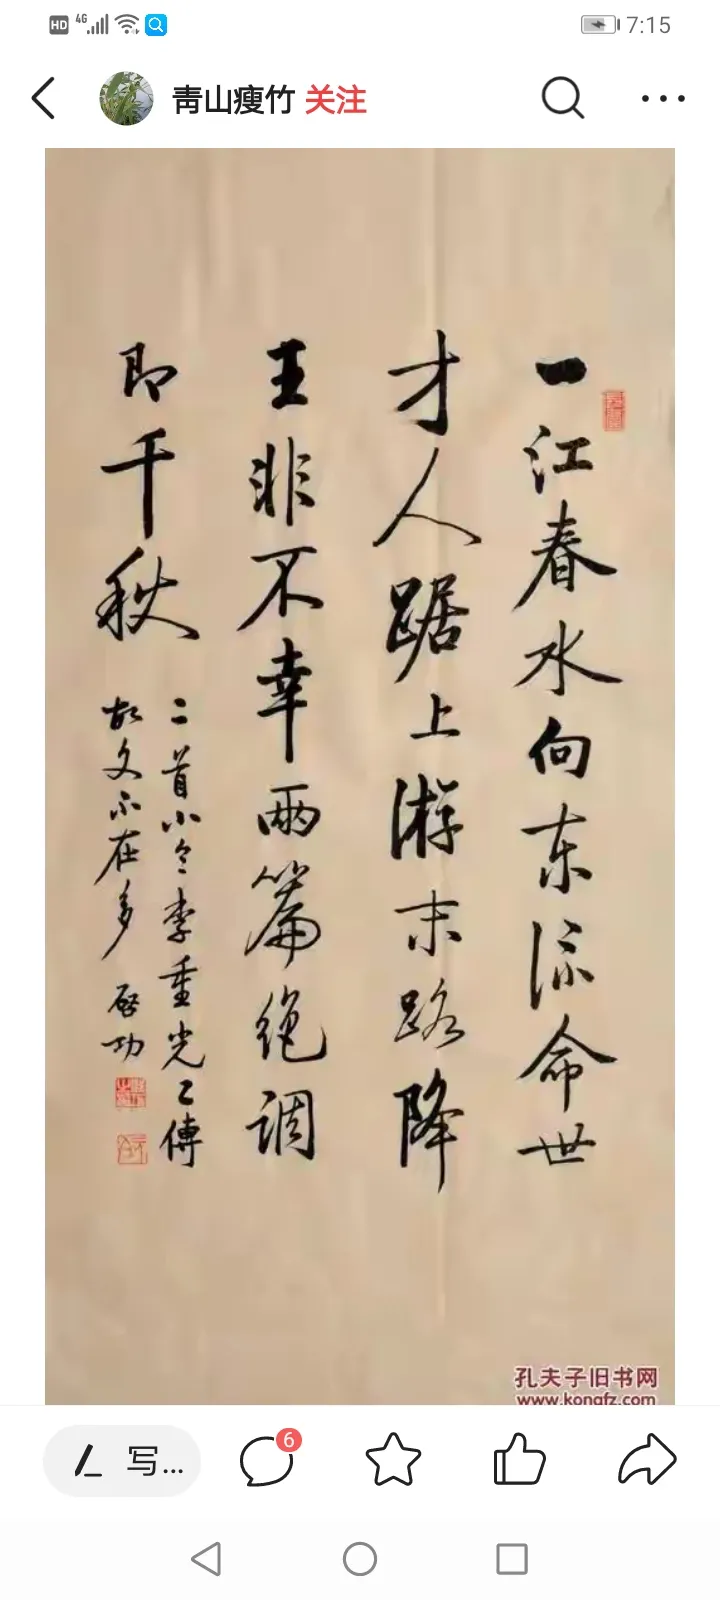 HD 4G 7:15
青山瘦竹 关注
一江春水向东流命世
才人踞上游末路降
王非不幸两篇绝调
即千秋
二首小令李重光之传
故文不在多 启功
孔夫子旧书网
www.kongfz.com
写...
6